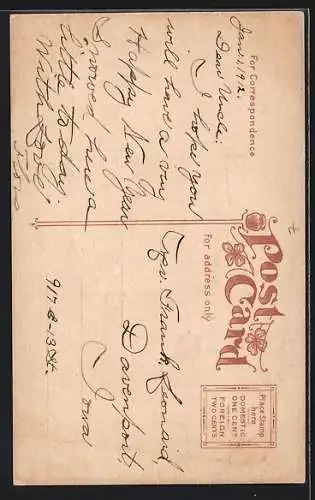 For Correspondence
Jan. 1, 1912.
Dear Uncle:
I hope you
will have a very
Happy New Year
Snowed here a
little to-day.
With a Love,
Post Card
For address only
Place Stamp
here
DOMESTIC
ONE CENT
FOREIGN
TWO CENTS
Frank Leonard,
917 E-13 St.
Davenport,
Iowa